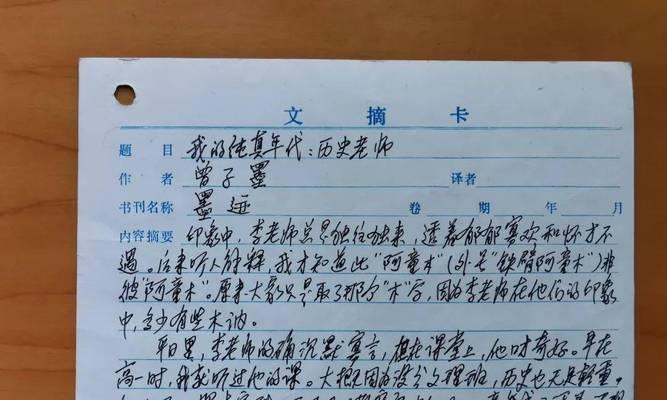 文摘卡
题目 我的纯真年代：历史老师
作者 曾子墨 译者
书刊名称 墨迹 卷 期 年 月
内容摘要 印象中，李老师总是独往独来，透着郁郁寡欢和怀才不
遇。后来听人解释，我才知道此“阿童木”（外号“铁臂阿童木”）非
彼“阿童木”。原来大家只是取了那个“木”字，因为李老师在他们的印象
中，多少有些木讷。
平日里，李老师的确沉默寡言，但在课堂上，他口才奇好。早在
高一时，我就听过他的课。大概因为没分文理班，历史也无足轻重，